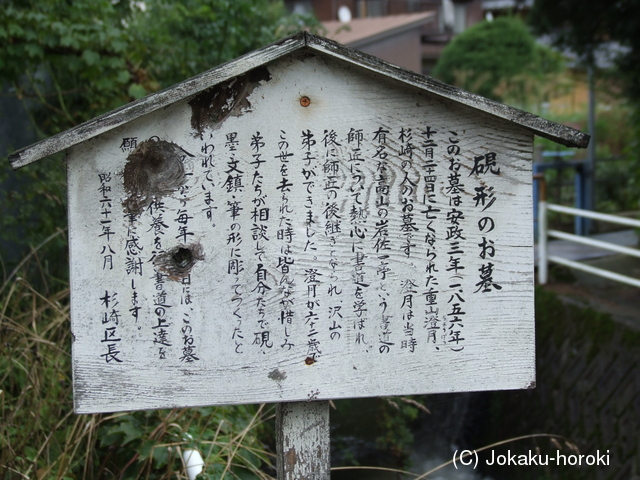 硯形のお墓
このお墓は安政三年(一八五六年)
十二月二十四日に亡くなられた重山澄月、
杉崎の人のお墓です。澄月は当時
有名な高山の岩佐一亭という書道の
師匠について熱心に書道を学ばれ、
後に師匠の後継ぎとなられ 沢山の
弟子ができました。澄月が六十三歳で
この世を去られた時は皆んなが惜しみ
弟子たちが相談して自分たちで硯、
墨、文鎮、筆の形に彫ってつくったと
いわれています。
から毎年 日は、このお墓
の 供養を行 書道の上達を
願 筆に感謝します。
昭和六十一年八月 杉崎区長
(C) Jokaku-horoki